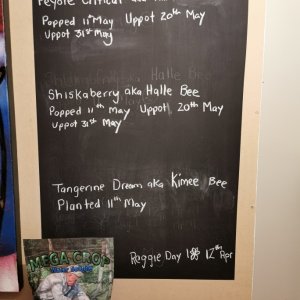 Peyote Critical aka
Popped 11th May Uppot 20th May
Uppot 31st May
Shiskaberry aka Halle Bee
Shiskaberry aka Halle Bee
Popped 11th May Uppot 20th May
Uppot 31st May
Tangerine Dream aka Kimee Bee
Planted 11th May
Reggie Day 1 12th Apr
MEGA CROP